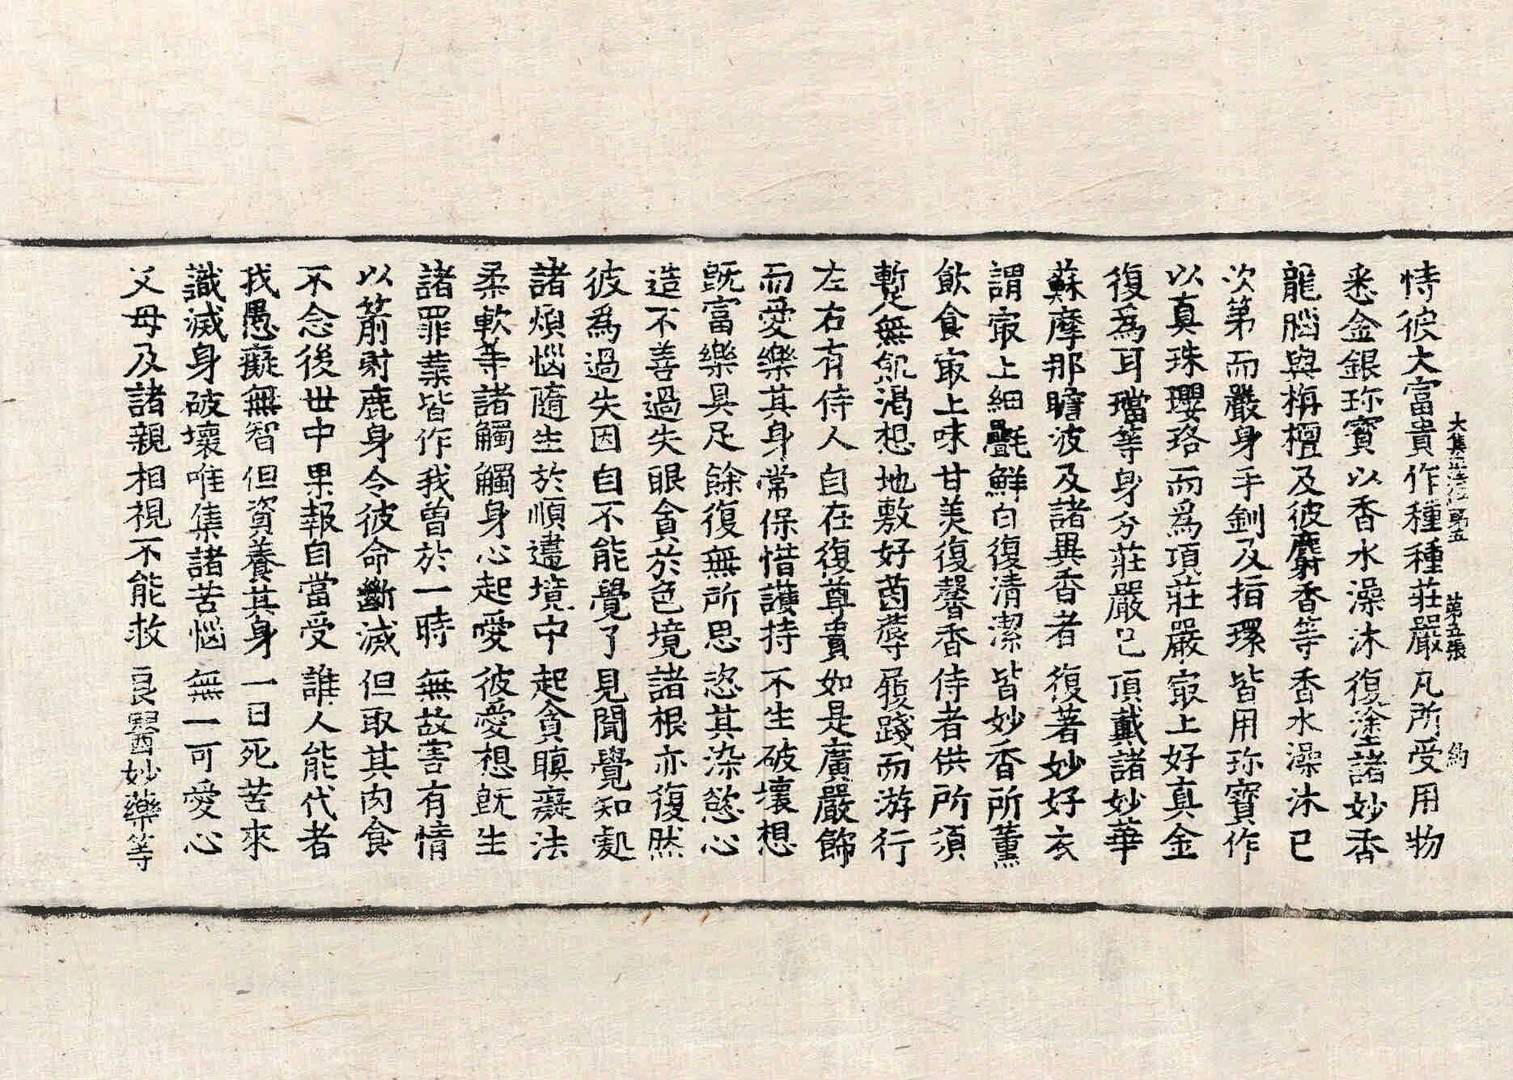 大集正法經第五 第五張 約
恃彼大富貴作種種莊嚴凡所受用物
悉金銀珎寶以香水澡沐復塗諸妙香
龍腦與栴檀及彼麝香等香水澡沐已
次第而嚴身手釧及指環皆用珎寶作
以真珠瓔珞而為項莊嚴㝡上好真金
復為耳璫等身分莊嚴已頂戴諸妙華
蘇摩那瞻波及諸異香者復著妙好衣
謂㝡上細㲲鮮白復清潔皆妙香所薰
飲食㝡上味甘美復馨香侍者供所須
蹔無飢渴想地敷好茵蓐履踐而游行
左右有侍人自在復尊貴如是廣嚴飾
而愛樂其身常保惜護持不生破壞想
旣富樂具足餘復無所思恣其染慾心
造不善過失眼貪於色境諸根亦復然
彼為過失因自不能覺了見聞覺知處
諸煩惱隨生於順違境中起貪瞋癡法
柔軟等諸觸觸身心起愛彼愛想旣生
諸罪業皆作我曾於一時無故害有情
以箭射鹿身令彼命斷滅但取其肉食
不念後世中果報自當受誰人能代者
我愚癡無智但資養其身一日死苦來
識滅身破壞唯集諸苦惱無一可愛心
父母及諸親相視不能救良醫妙藥等